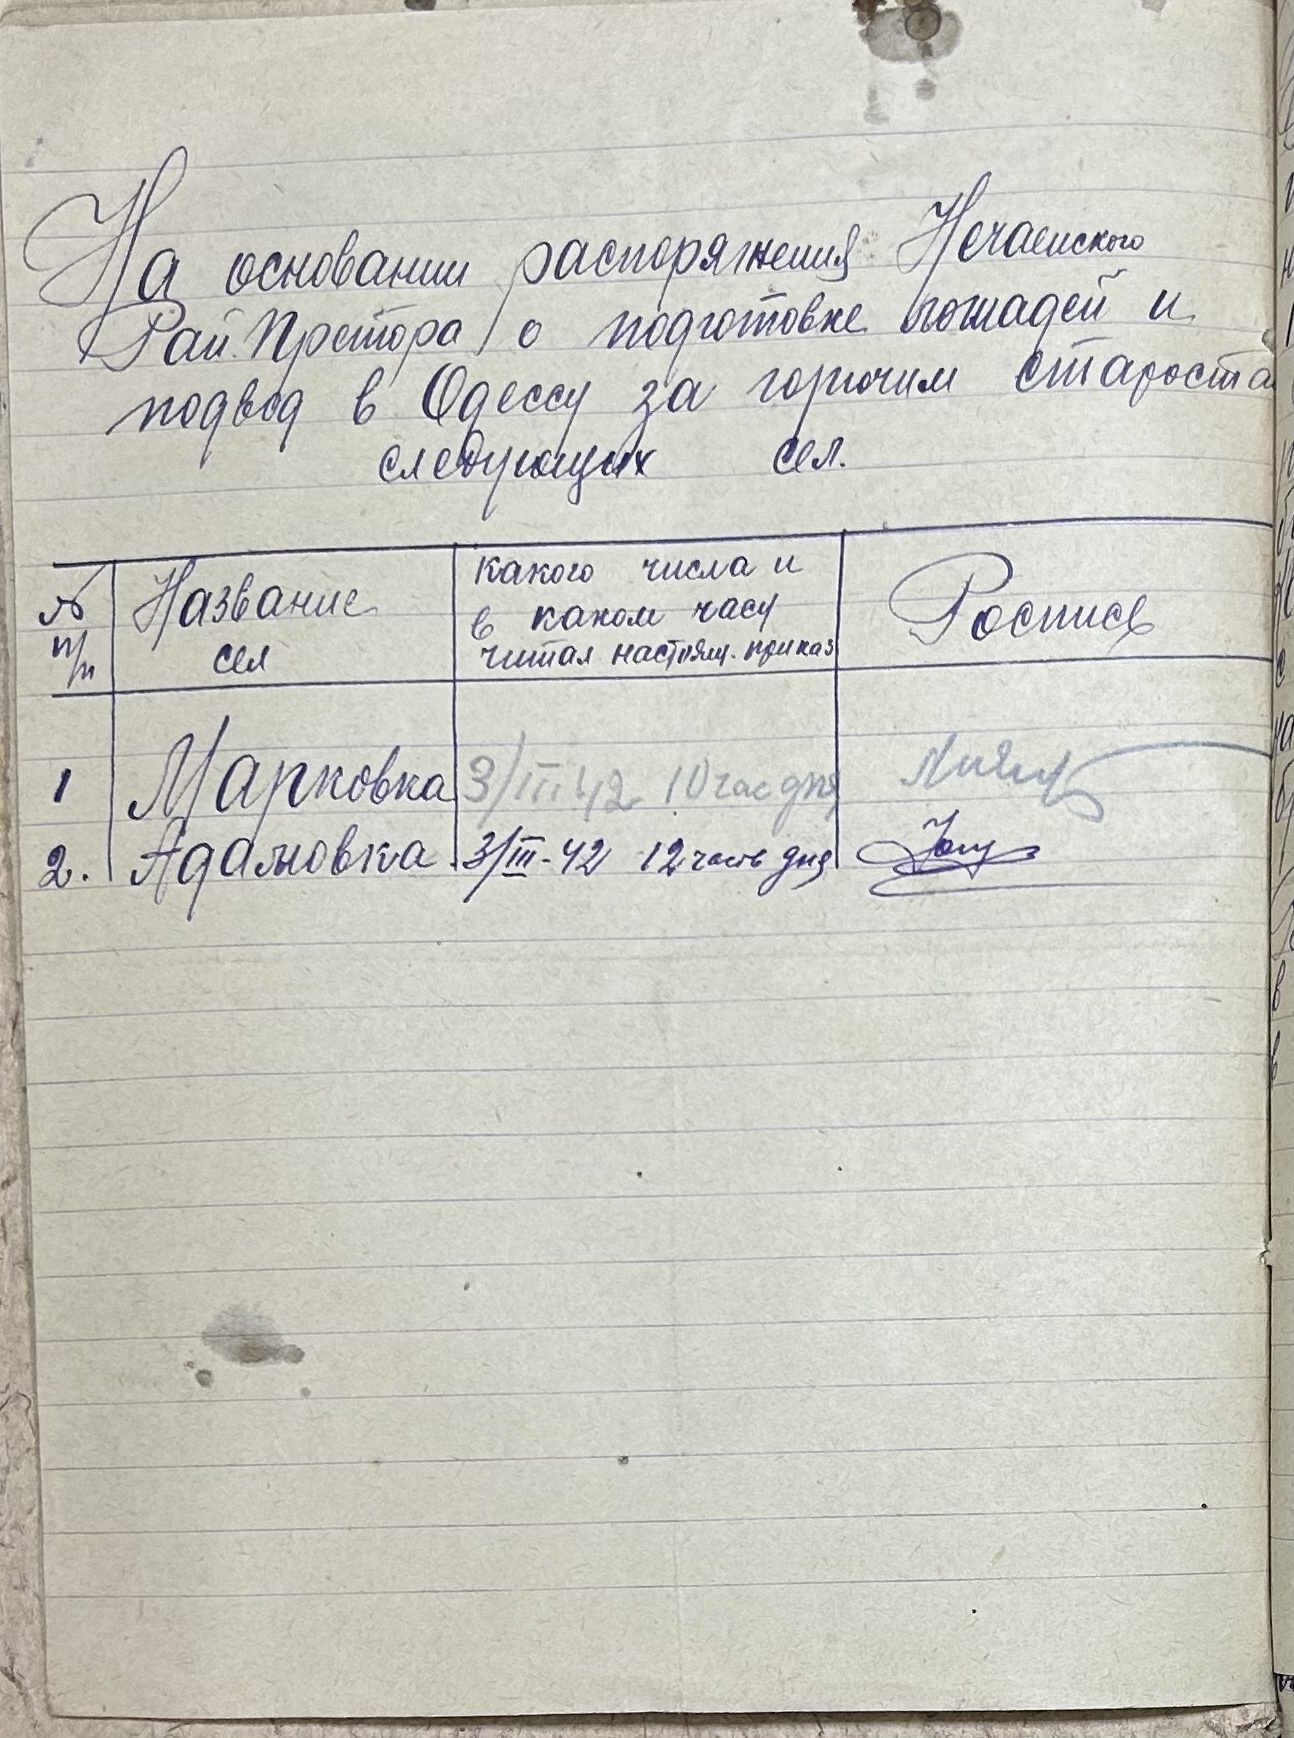 На основании распоряжения Нечаенского
Рай. Претора о подготовке лошадей и
подвод в Одессу за горючим староста
следующих сел.
№ п/п Название сел какого числа и в каком часу читал настоящ. приказ Роспись
1 Марковка 3/III 42 10 час дня
2. Адамовка 3/III-42 12 часв дня